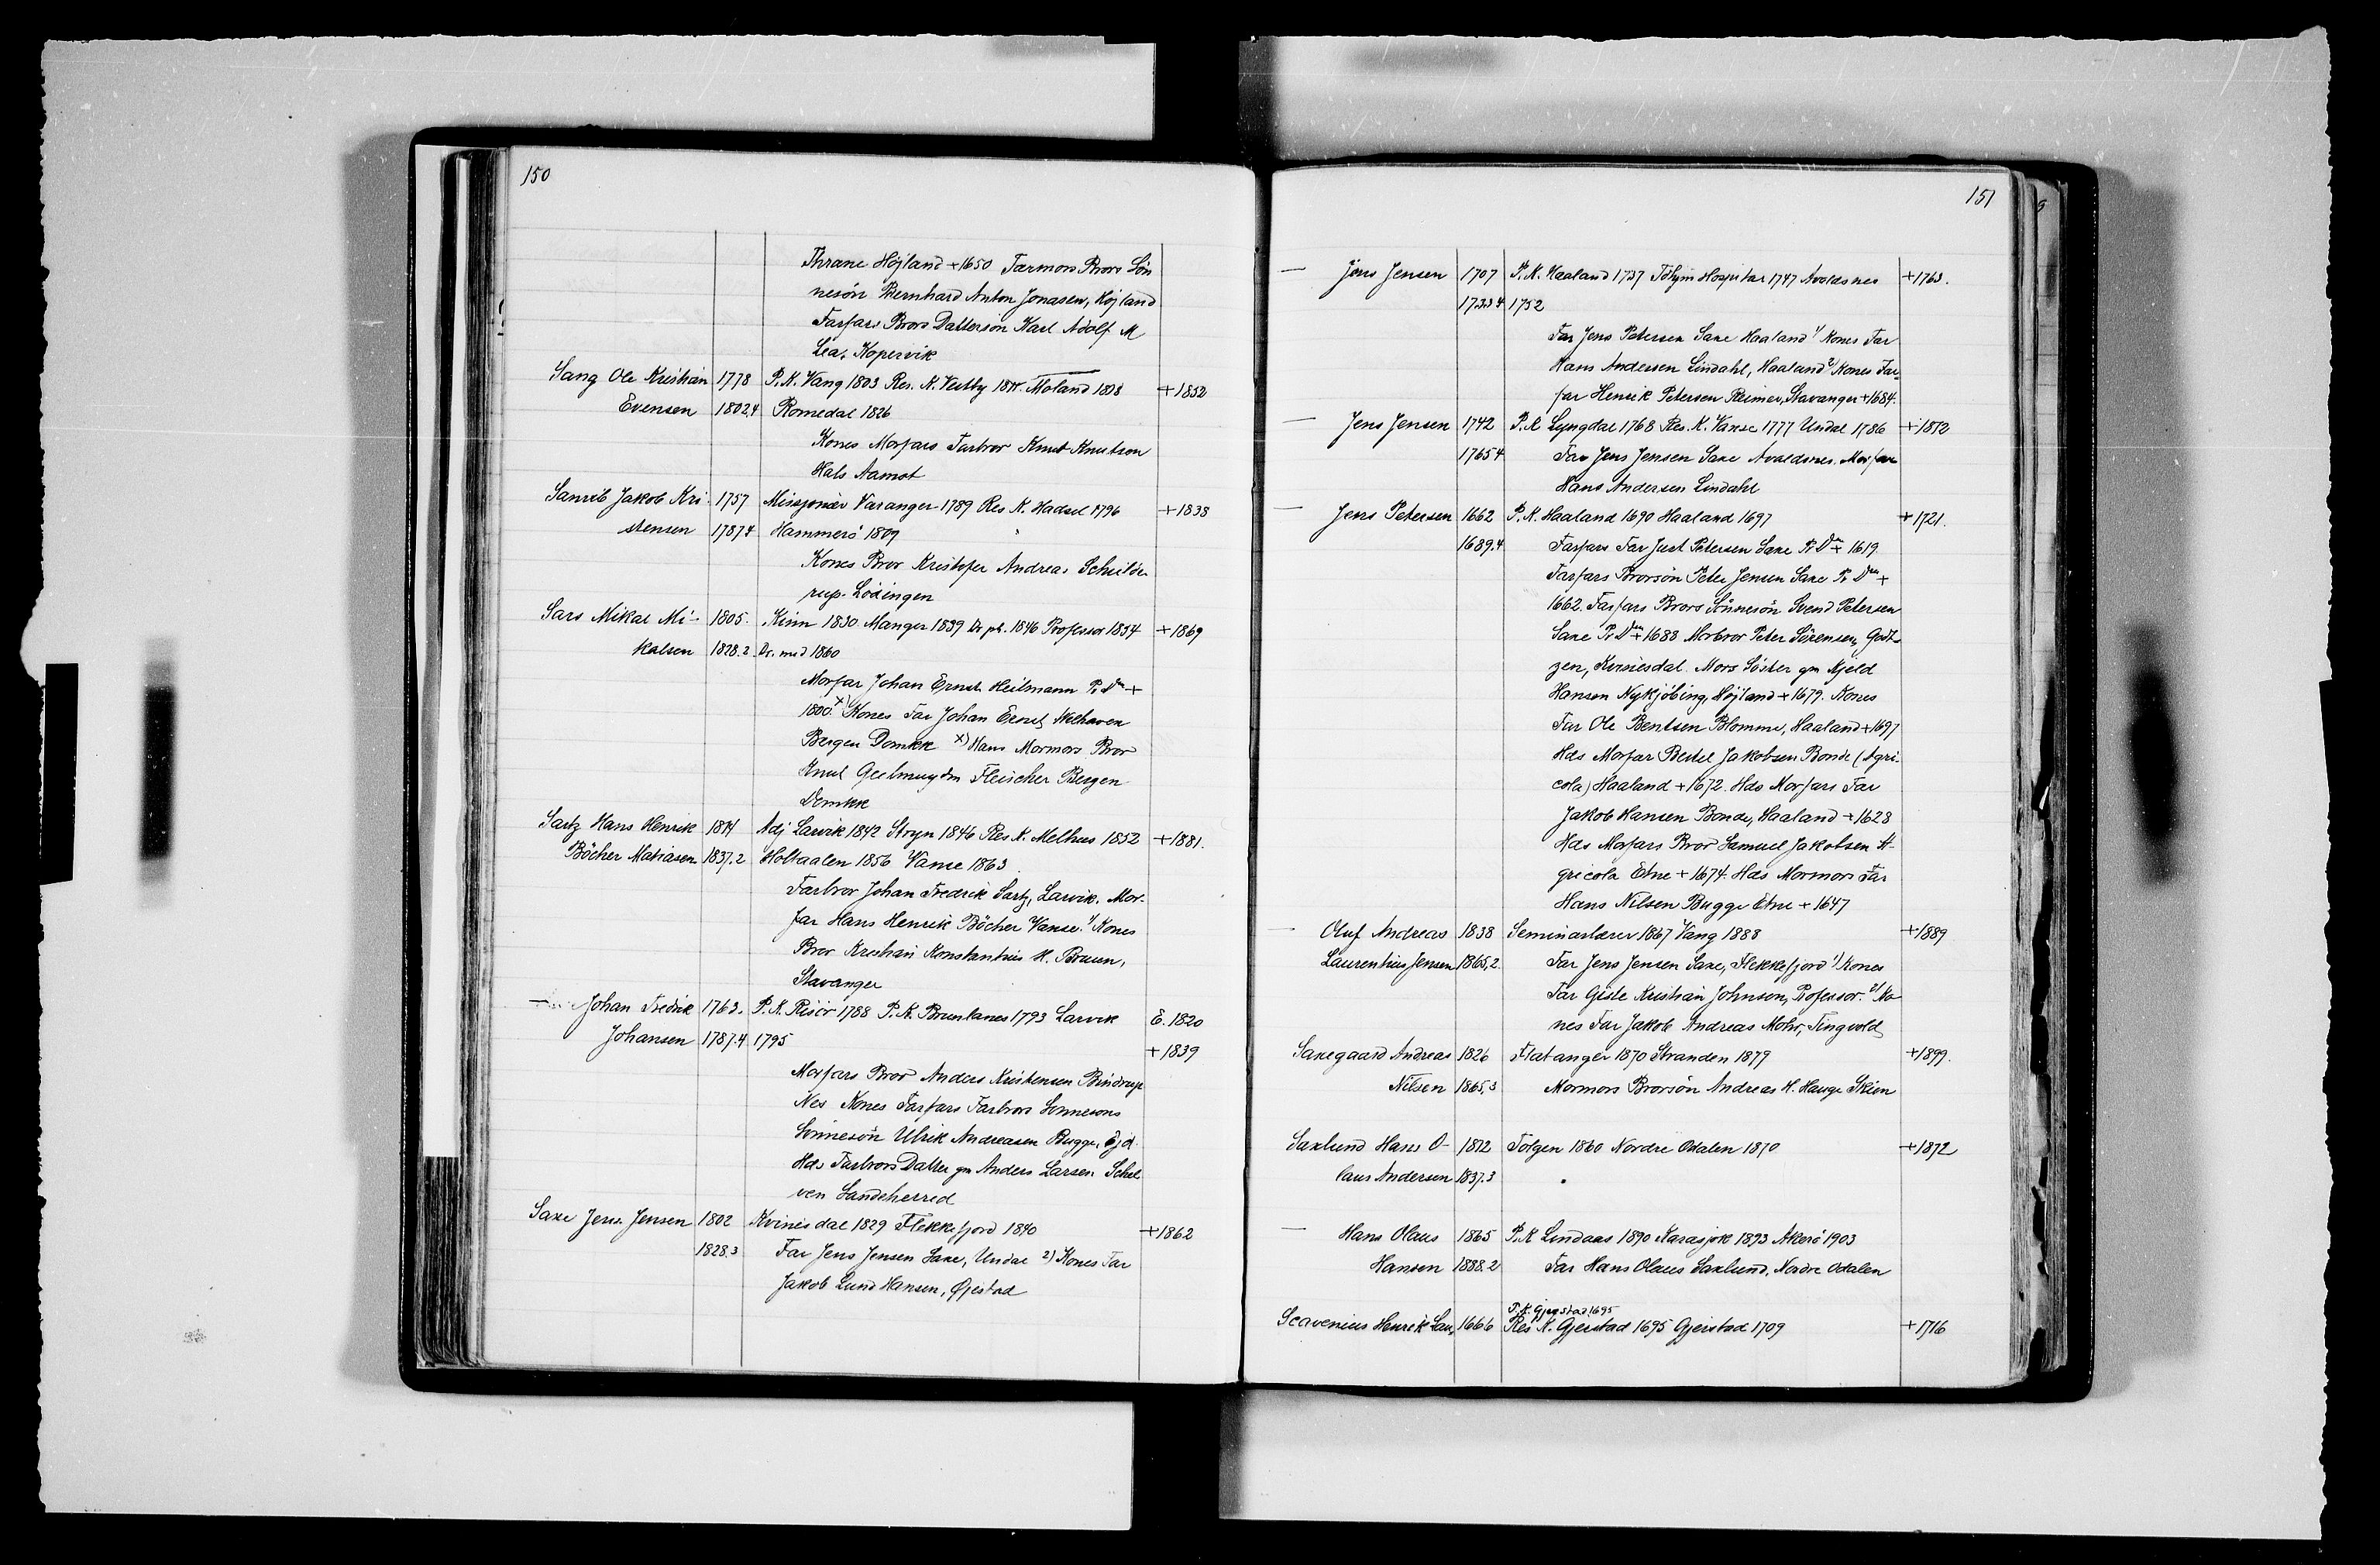 150
Thrane Höjland +1650 Farmors Brors Sön
nesön Bernhard Anton Jonasen, Höjland
Farfars Brors Dattersön Karl Adolf M
Lea, Kopervik
Sang Ole Kristian 1778 P.K. Vang 1803 Res. K. Vestby Moland 1808 +1832
Evensen 1802,4 Romedal 1826
Kones Morfars Farbror Knut Knutson
Hals Aamot
Sanrib Jakob Kri- 1757 Missjonær Varanger 1789 Res K. Hadsel 1796 +1838
stensen 1787,4 Hammerö 1809
Kones Bror Kristofer Andreas Schilde
rup. Lödingen
Sars Mikal Mi- 1805. Kinn 1830. Manger 1839 Dr ph. 1846 Professor 1854 +1869
kalsen 1828.2 Dr. med 1860
Morfar Johan Ernst Heilmann Pr Dm +
1800. x) Kones Far Johan Ernst Welhaven
Bergen Domkk x) Hans Mormors Bror
Knut Geelmuyden Fleischer Bergen
Domkk
Sartz Hans Henrik 1814 Adj Larvik 1842 Stryn 1846 Res K. Melhus 1852 +1881.
Böcher Matiasen 1837.2 Holtaalen 1856 Vanse 1863
Farbror Johan Fredrik Sartz, Larvik. Mor-
far Hans Henrik Böcher Vanse. 1) Kones
Bror Kristian Konstantius H. Bruun,
Stavanger
— Johan Fredrik 1763. P.K. Risör 1788 P.K. Brunlanes 1793 Larvik E. 1820
Johansen 1787.4 1795 +1839
Morfars Bror Anders Kristensen Bindrup
Nes Kones Farfars Farbrors Sonnesons
Sönnesön Ulrik Andreasen Bugge, Ejd.
Hds Farbrors Datter gm Anders Larsen Schel
ven Sandeherred
Saxe Jens Jensen 1802 Kvinesdal 1829 Flekkefjord 1840 +1862
1828.3 Far Jens Jensen Saxe, Undal 2) Kones Far
Jakob Lund Hansen, Øjestad
151
— Jens Jensen 1707 P.K. Haaland 1737 Hospital 1747 Avaldsnes +1763.
1733.4 1752
Far Jens Petersen Saxe Haaland 1) Kones Far
Hans Andersen Lindahl, Haaland 2) Kones Far-
far Henrik Petersen Reimer, Stavanger +1684.
— Jens Jensen 1742 P.K Lyngdal 1768 Res. K. Vanse 1777 Undal 1786 +1812
1765 4 Far Jens Jensen Saxe Avaldsnes. Morfar
Hans Andersen Lindahl
— Jens Petersen 1662 P.K. Haaland 1690 Haaland 1697 +1721.
1689.4 Farfars Far Just Petersen Saxe Pr Dm + 1619.
Farfars Brorsön Peter Jensen Saxe Pr Dm +
1662. Farfars Brors Sönnesön Svend Petersen
Saxe Pr Dm +1688 Morbror Peter Sörensen, Godt-
zen, Kvinesdal. Mors Söster gm Kjeld
Hansen Nykjöbing, Höjland +1679. Kones
Far Ole Bentsen Blomme, Haaland +1697
Hds Morfar Bertel Jakobsen Bonde (Agri-
cola) Haaland +1672. Hds Morfars Far
Jakob Hansen Bonde, Haaland +1628
Hds Morfars Bror Samuel Jakobsen A-
gricola Etne +1674. Hds Mormors Far
Hans Nilsen Bugge Etne +1647
— Oluf Andreas 1838 Seminarlærer 1867 Vang 1888 +1889
Laurentius Jensen 1865,2. Far Jens Jensen Saxe, Flekkefjord 1) Kones
Far Gisle Kristian Johnson, Professor. 2) Ko
nes Far Jakob Andreas Mohr, Tingvold
Saxegaard Andreas 1826 Flatanger 1870 Stranden 1879 +1899.
Nilsen 1865,3 Mormors Brorsön Andreas H. Hauge Skien
Saxlund Hans O- 1812 Tolgen 1860 Nordre Odalen 1870 +1872
laus Andersen 1837.3
— Hans Olaus 1865 P.K Lindaas 1890 Karasjok 1893 Akerö 1903
Hansen 1888.2 Far Hans Olaus Saxlund, Nordre Odalen
P.K. Gjerstad 1695
Scavenius Henrik Lau, 1666 Res K. Gjerstad 1695 Gjerstad 1709 +1716